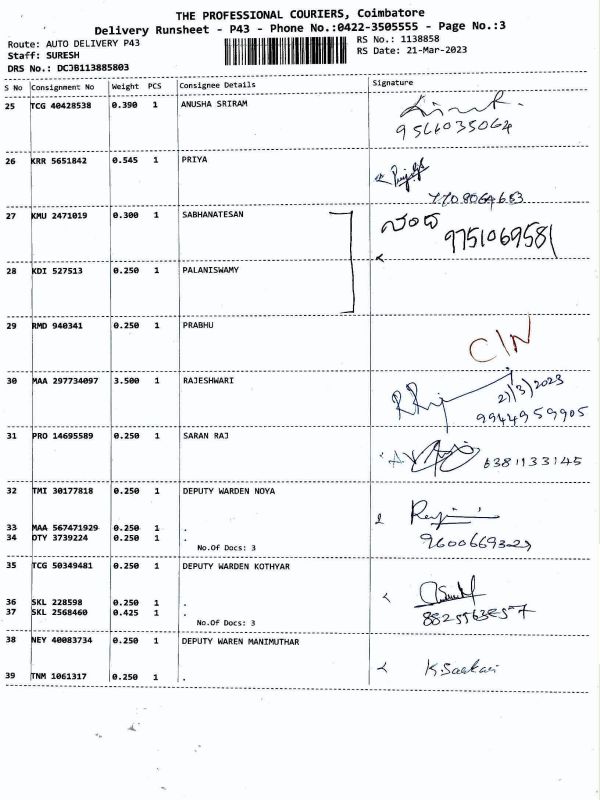 THE PROFESSIONAL COURIERS, Coimbatore
Delivery Runsheet - P43 - Phone No.:0422-3505555 - Page No.:3
Route: AUTO DELIVERY P43 RS No.: 1138858
Staff: SURESH RS Date: 21-Mar-2023
DRS No.: DCJB113885803
S No Consignment No Weight PCS Consignee Details Signature
25 TCG 40428538 0.390 1 ANUSHA SRIRAM
9566035064
26 KRR 5651842 0.545 1 PRIYA
7708064653
27 KMU 2471019 0.300 1 SABHANATESAN
9751069581
28 KDI 527513 0.250 1 PALANISWAMY
29 RMD 940341 0.250 1 PRABHU
C/N
30 MAA 297734097 3.500 1 RAJESHWARI
21/3/2023
9944959905
31 PRO 14695589 0.250 1 SARAN RAJ
6381133145
32 TMI 30177818 0.250 1 DEPUTY WARDEN NOYA
33 MAA 567471929 0.250 1 .
34 DTY 3739224 0.250 1 .
No.Of Docs: 3
9600669329
35 TCG 50349481 0.250 1 DEPUTY WARDEN KOTHYAR
36 SKL 228598 0.250 1 .
37 SKL 2568460 0.425 1 .
No.Of Docs: 3
38 NEY 40083734 0.250 1 DEPUTY WAREN MANIMUTHAR
39 TNM 1061317 0.250 1 .